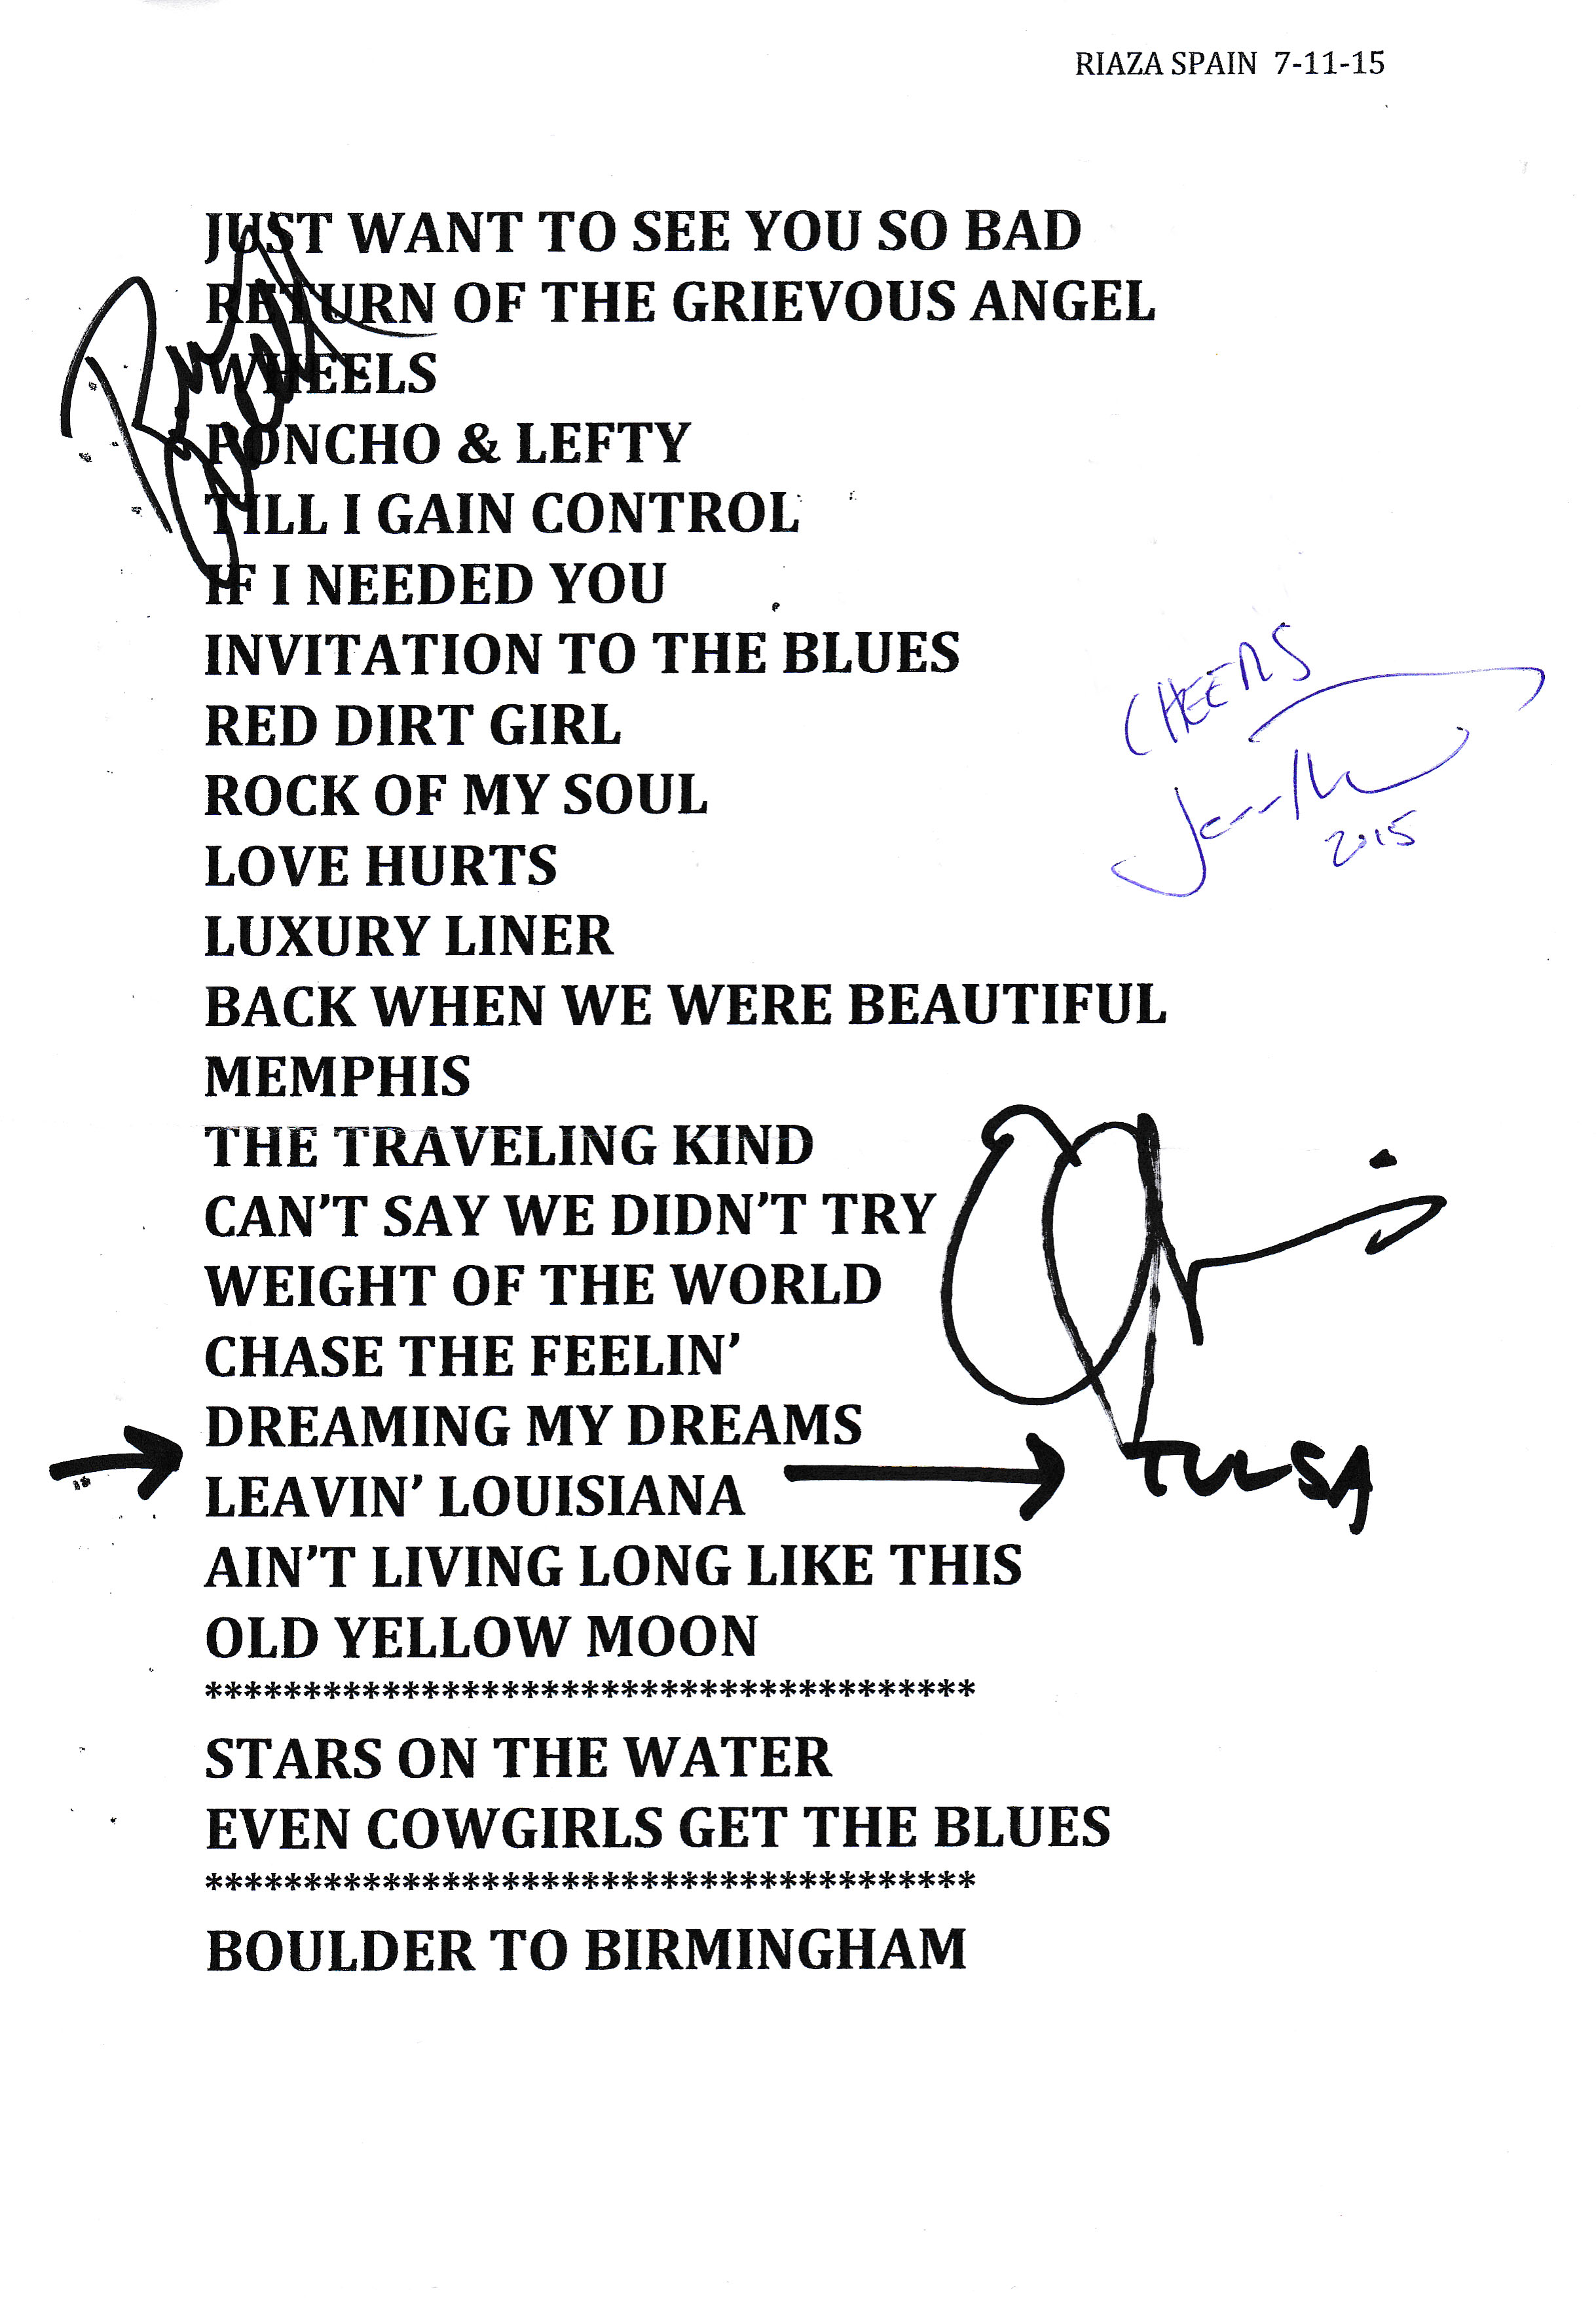 RIAZA SPAIN 7-11-15
JUST WANT TO SEE YOU SO BAD
RETURN OF THE GRIEVOUS ANGEL
WHEELS
PONCHO & LEFTY
TILL I GAIN CONTROL
IF I NEEDED YOU
INVITATION TO THE BLUES
CHEERS
RED DIRT GIRL
ROCK OF MY SOUL
2015
LOVE HURTS
LUXURY LINER
BACK WHEN WE WERE BEAUTIFUL
MEMPHIS
THE TRAVELING KIND
CAN'T SAY WE DIDN'T TRY
WEIGHT OF THE WORLD
CHASE THE FEELIN'
DREAMING MY DREAMS
→ LEAVIN' LOUISIANA → TULSA
AIN'T LIVING LONG LIKE THIS
OLD YELLOW MOON
***************************************
STARS ON THE WATER
EVEN COWGIRLS GET THE BLUES
***************************************
BOULDER TO BIRMINGHAM